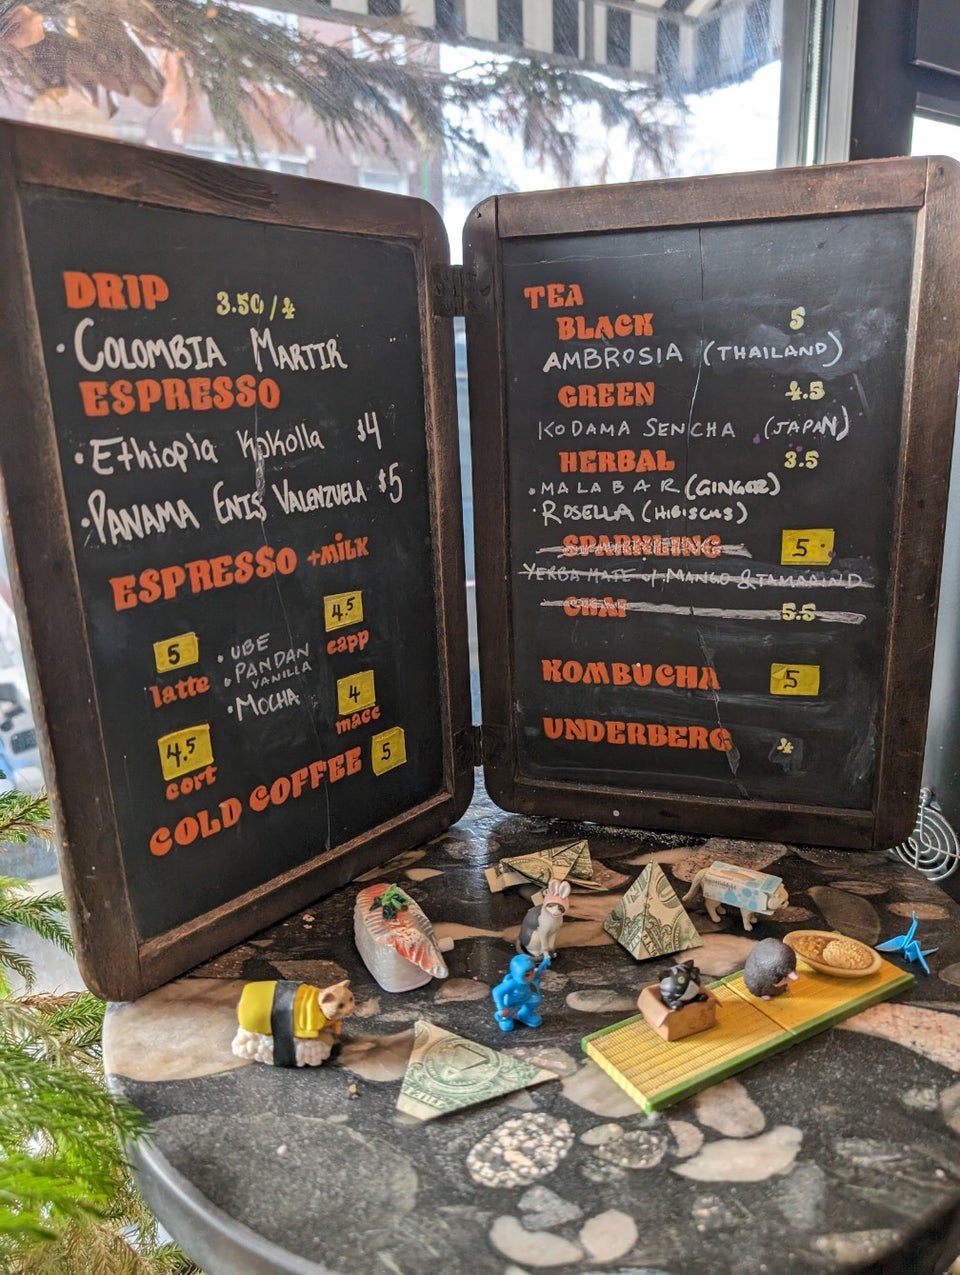 DRIP 3.50/4
• COLOMBIA MARTIR
ESPRESSO
• Ethiopia Kokolla $4
• PANAMA ENIS VALENZUELA $5
ESPRESSO +MILK
5
latte
4.5
capp
• UBE
• PANDAN
VANILLA
• MOCHA
4.5
cort
4
macc
COLD COFFEE 5
TEA
BLACK 5
AMBROSIA (THAILAND)
GREEN 4.5
KODAMA SENCHA (JAPAN)
HERBAL 3.5
• MALABAR (GINGER)
• ROSELLA (HIBISCUS)
SPARKLING 5
YERBA MATE w/ MANGO & TAMARIND
CHAI 5.5
KOMBUCHA 5
UNDERBERG 4